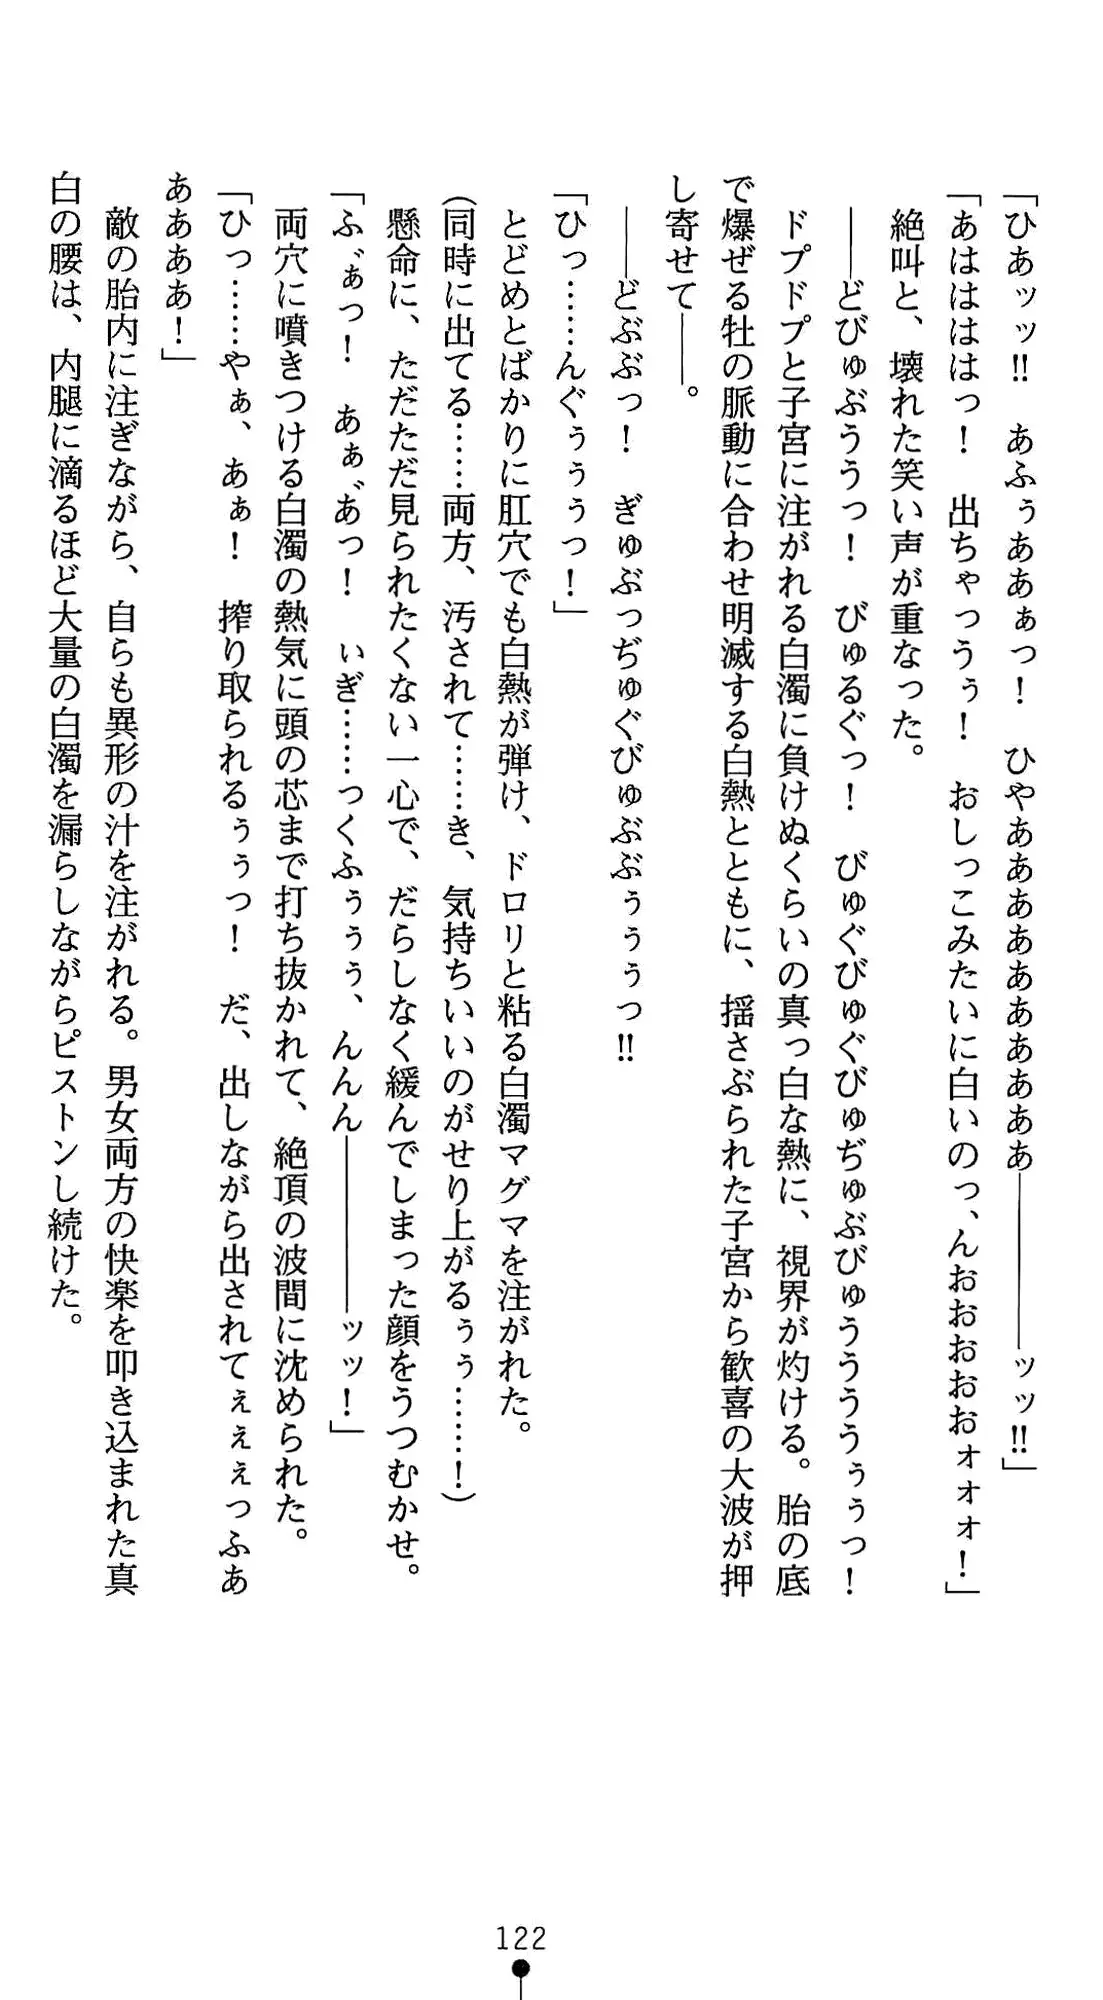 「ひあッッ!!　あふぅああぁっ！　ひやあああああああああぁ―――――ッッ!!」
「あはははっ！　出ちゃっうぅ！　おしっこみたいに白いのっ、んぉおおおおォォォ！」
　絶叫と、壊れた笑い声が重なった。
　――どびゅぶううっ！　びゅるぐっ！　びゅぐびゅぐびゅぢゅぶびゅううううぅぅっ！
　ドプドプと子宮に注がれる白濁に負けぬくらいの真っ白な熱に、視界が灼ける。胎の底
で爆ぜる牡の脈動に合わせ明滅する白熱とともに、揺さぶられた子宮から歓喜の大波が押
し寄せて――。
　――どぶぶっ！　ぎゅぶっぢゅぐびゅぶぶぅぅぅっ!!
「ひっ……んぐぅぅぅっ！」
　とどめとばかりに肛穴でも白熱が弾け、ドロリと粘る白濁マグマを注がれた。
（同時に出てる……両方、汚されて……き、気持ちいいのがせり上がるぅぅ……！）
　懸命に、ただただ見られたくない一心で、だらしなく緩んでしまった顔をうつむかせ。
「ふ゛ぁっ！　あぁ゛あっ！　ぃぎ……っくふぅぅぅ、んんん―――――ッッ！」
　両穴に噴きつける白濁の熱気に頭の芯まで打ち抜かれて、絶頂の波間に沈められた。
「ひっ……やぁ、あぁ！　搾り取られるぅぅっ！　だ、出しながら出されてぇぇぇっふあ
ああああ！」
　敵の胎内に注ぎながら、自らも異形の汁を注がれる。男女両方の快楽を叩き込まれた真
白の腰は、内腿に滴るほど大量の白濁を漏らしながらピストンし続けた。
122